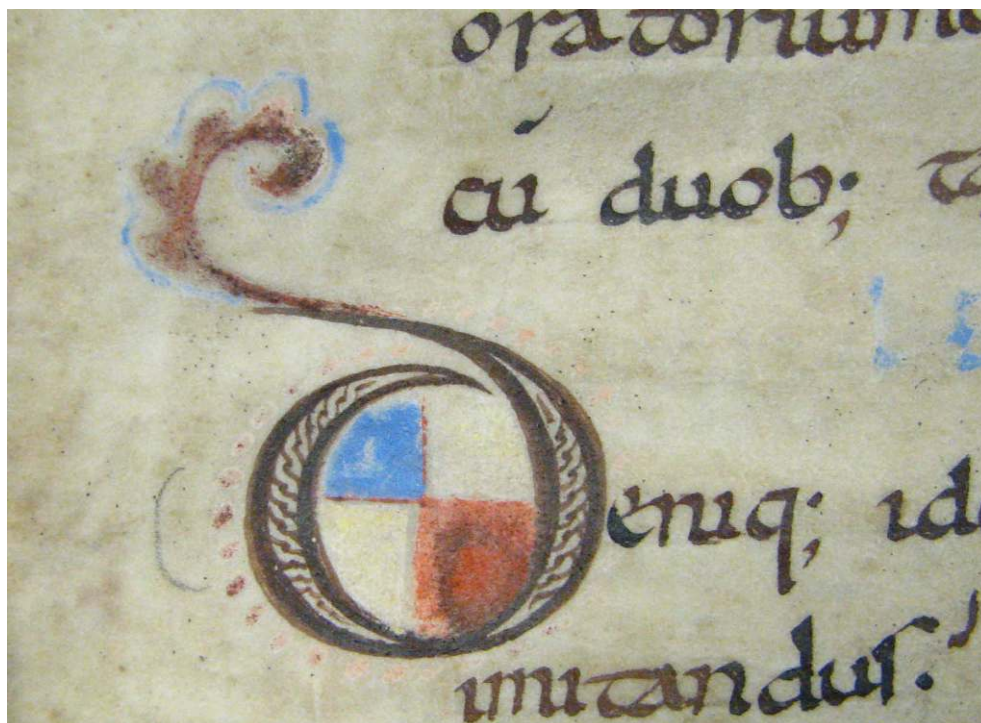 oratorium
cū duob;
Deniq; id
imitandus.